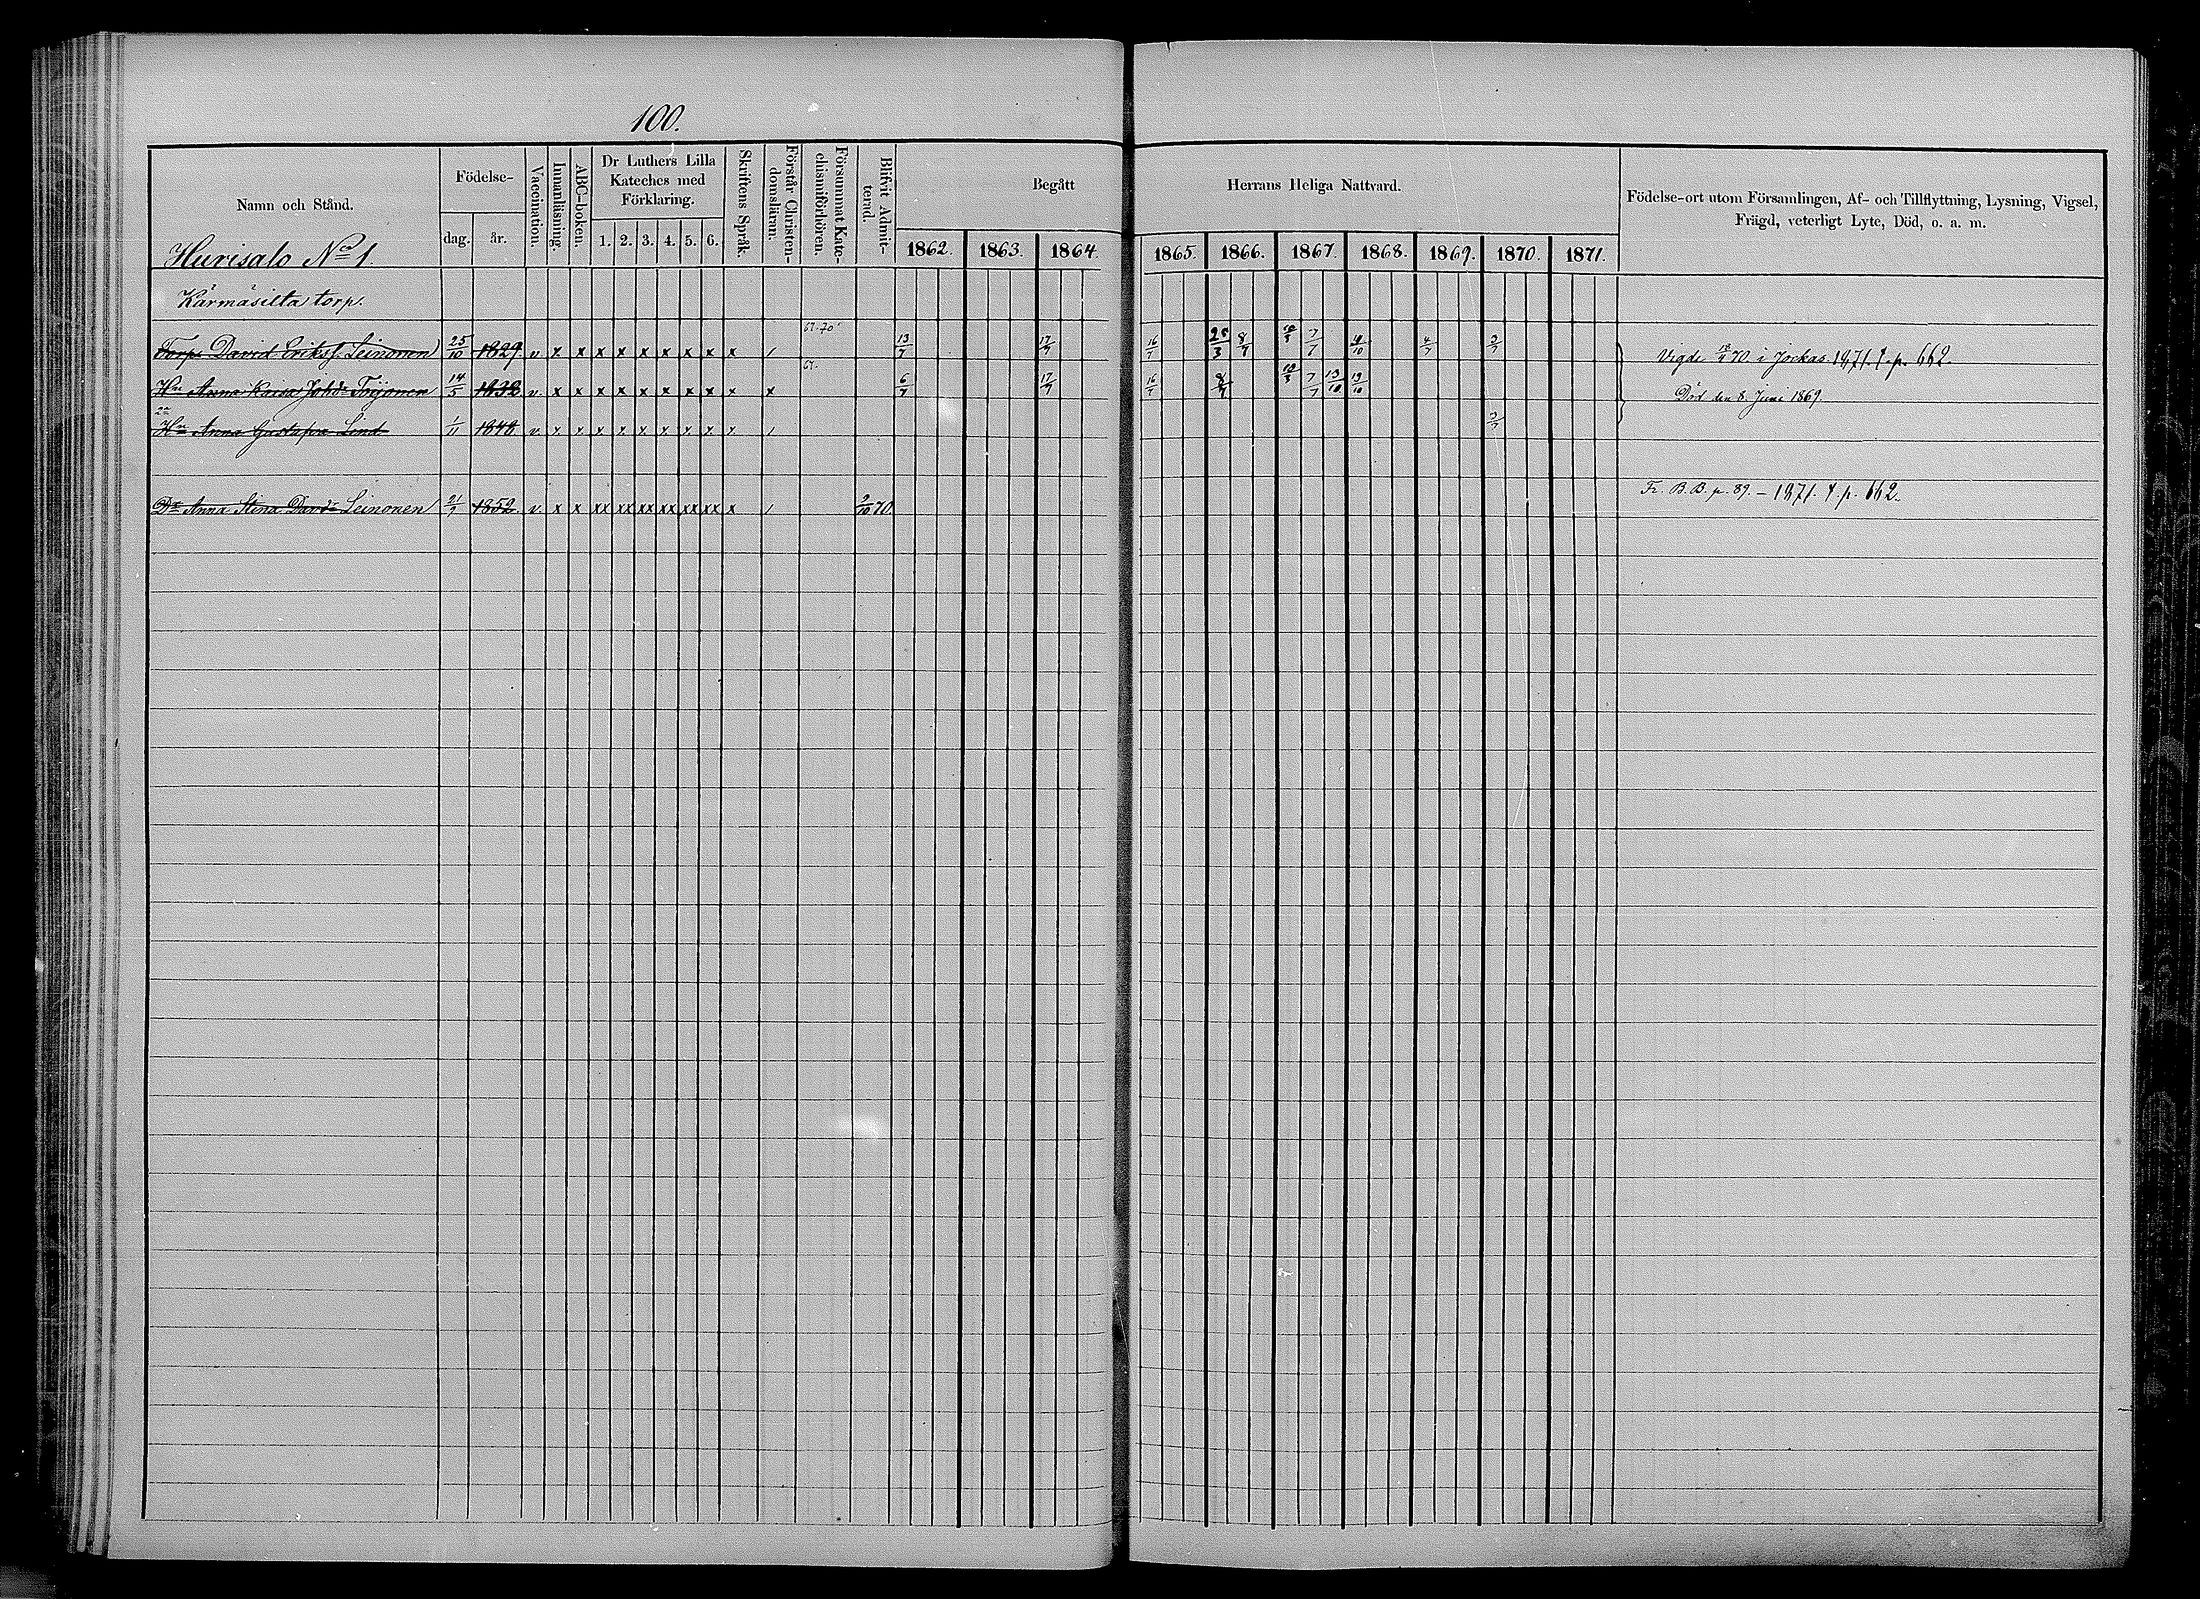 100.
Namn och Stånd. Födelse- dag. år. Vaccination. Innanläsning. ABC-boken. Dr Luthers Lilla Kateches med Förklaring. 1. 2. 3. 4. 5. 6. Skriftens Språk. Förstår Christendomsläran. Försummat Katechismiförhören. Blifvit Admitterad. Begått Herrans Heliga Nattvard. 1862. 1863. 1864. 1865. 1866. 1867. 1868. 1869. 1870. 1871. Födelse-ort utom Församlingen, Af- och Tillflyttning, Lysning, Vigsel, Frägd, veterligt Lyte, Död, o. a. m.
Hurisalo No 1.
Kärmäsilta torp.
Torp. David Erikss. Leinonen 25/10 1829. v. x x x x x x x x x / 67. 70 13/7 17/7 16/7 25/3 8/7 7/7 4/10 4/7 3/7 Vigde 70 i Jockas. 1971. Y. p. 662.
Hu Anna Kaisa Johdr 14/5 1832 v. x x x x x x x x x x 67. 6/7 17/7 16/7 8/7 7/7 13/10 Död den 8. Juni 1869.
2a Hu Anna Gustafva Lind 1/11 1848 v. x x x x x x x x x / 3/7
Dr Anna Stina Davdr Leinonen 21/7 1852 v. x x xx xx xx xx xx xx x / 9/10 70. Fr. B. B. p. 89. – 1971. Y. p. 662.